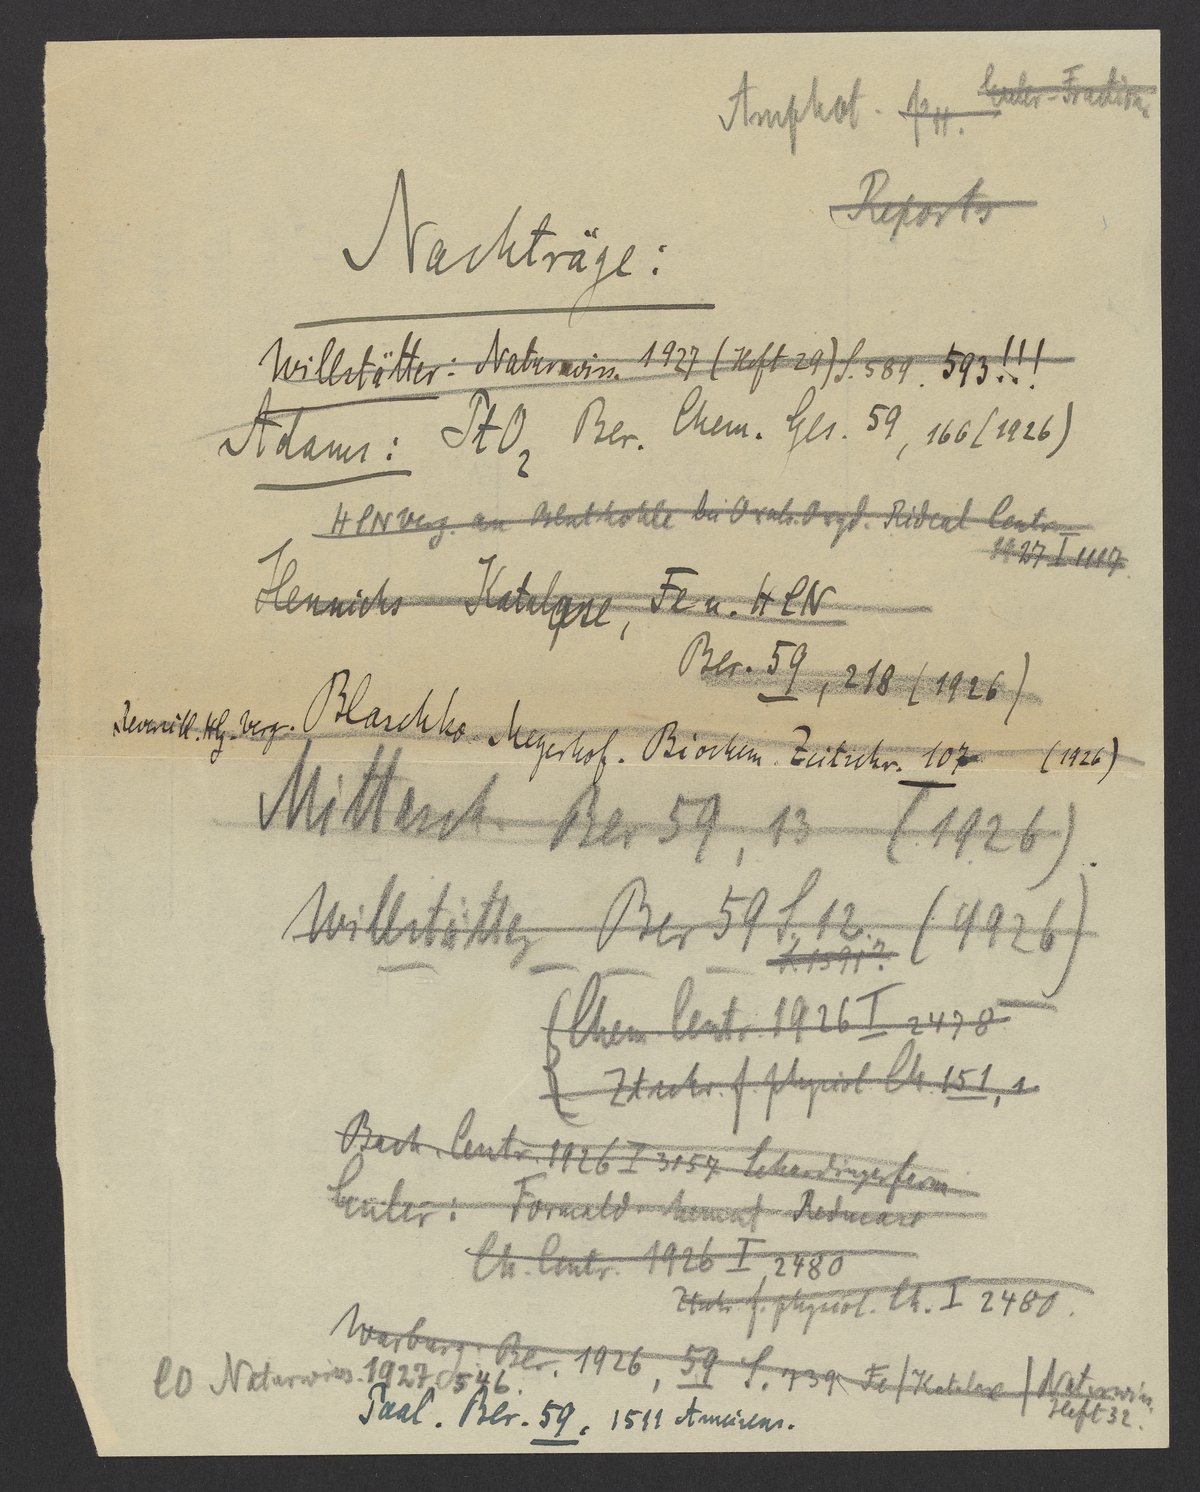 Amphot. pH. Euler-Fraction.
Reports
Nachträge:
Willstätter: Naturwiss. 1927 (Heft 29) S. 589. 593!!!
Adams: PtO2 Ber. Chem. Ges. 59, 166 (1926)
HCN Verg. an Blutkohle bei Oxals. Oxyd. Rideal Centr.
1927 I 1117.
Hennichs Katalase, Fe u. HCN
Ber. 59, 218 (1926)
Reversibl. Hg-Verg. Blaschko. Meyerhof. Biochem. Zeitschr. 107 (1926)
Mittasch. Ber 59, 13 (1926).
Willstätter Ber 59 S. 12. (1926)
(Chem. Centr. 1926 I 2478
Ztschr. f. physiol Ch. 151, 1
Bach. Centr. 1926 I 3157 Schardingerferm
Euler: Formald. hemmt Reducase
Ch. Centr. 1926 I 2480
Ztschr. f. physiol. Ch. I 2480.
Warburg: Ber. 1926, 59 S. 739 Fe/Katalase / Naturwiss.
Heft 32.
CO Naturwiss. 1927. S. 546.
Paal. Ber. 59, 1511 Ameisens.